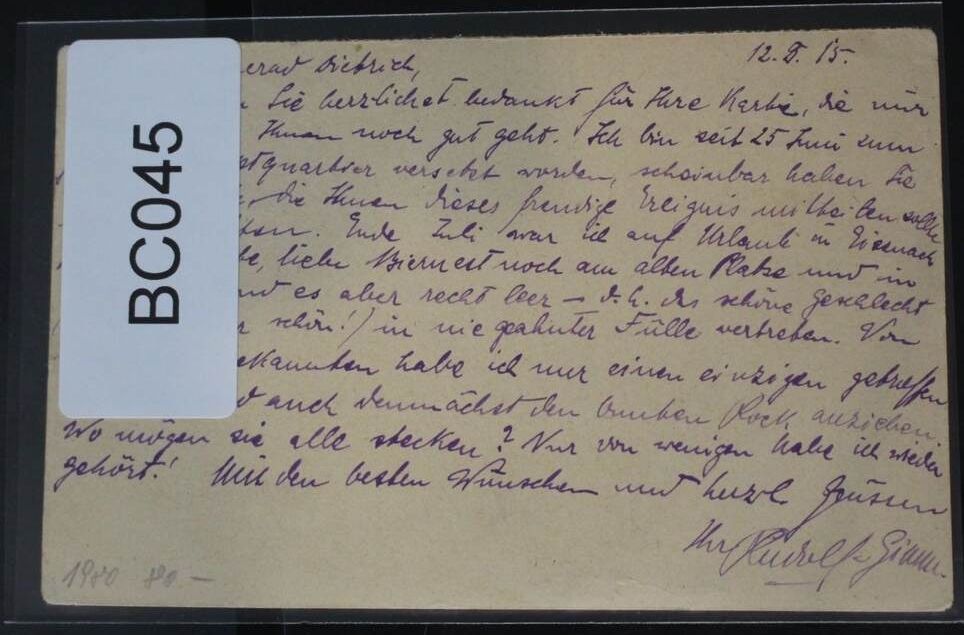 BC045
12. 15.
erad Dietrich,
Sie herzlichst bedankt für Ihre Karte, die mir
Ihnen noch gut geht. Ich bin seit 25 Juni zum
tquartier versetzt worden, scheinbar haben Sie
die Ihnen dieses freudige Ereignis mitteilen sollte
ten. Ende Juli war ich auf Urlaub in Eisenach
te, liebe Biernest noch am alten Platze und in
nd es aber recht leer – d.h. das schöne Geschlecht
r schön!) in nie geahnter Fülle vertreben. Von
ekannten habe ich nur einen einzigen getroffen
d auch demnächst den bunten Rock anziehen.
Wo mögen sie alle stecken? Nur von wenigen habe ich wieder
gehört! Mit den besten Wünschen und herzl. Grüssen
Ihr Rudolf
1980 80.–